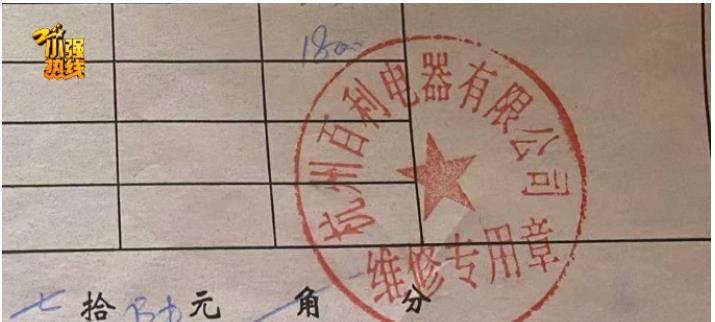 小强
热线
180
杭州百利电器有限公司
维修专用章
拾 元 角 分